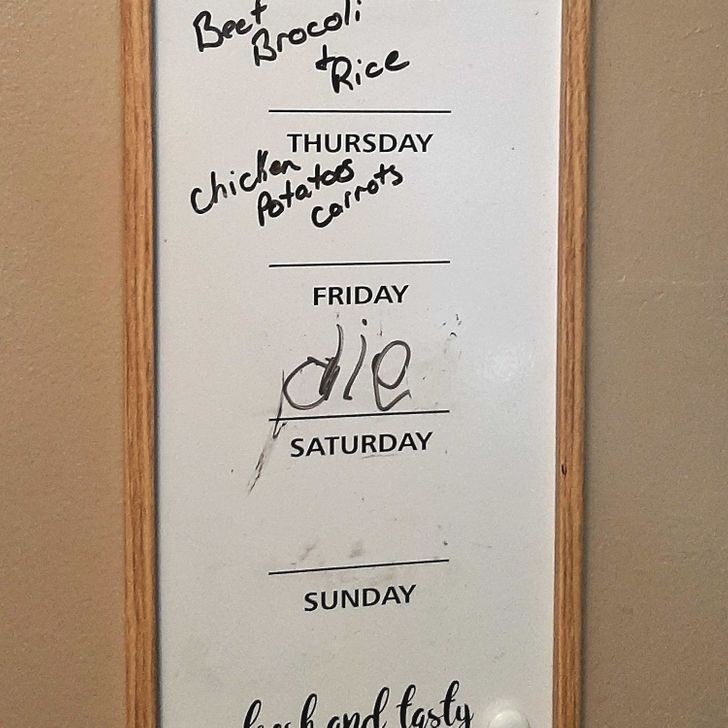 Beef
Brocoli
+ Rice
THURSDAY
Chicken
Potatoes
carrots
FRIDAY
die
SATURDAY
SUNDAY
fresh and tasty